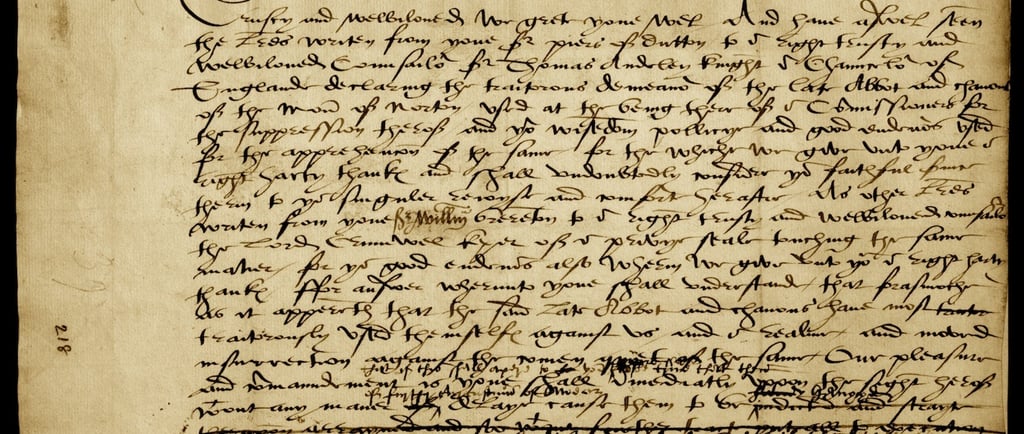 Trusty and welbiloued we grete youe wel And haue aswel seen
the lres writen from youe sr piers of dutton to or right trusty and
welbiloued Counsailor sr Thomas Audeley knight or Chauncelor of
Englande declaring the traitorous demeanor of the late Abbot and chanons
of the Mon of Norton used at the being there of or Comissioners for
the suppression therof and yor wisedom pollicye and good endeuor used
for the apprehencion of the same for the whiche we giue unto youe or
right harty thankes and shall undoubtedly considre yor faithful
therin to yor singuler reioyse and comfort herafter As other lres
writen from youe sr Willm Brereton to or right trusty and welbiloued counsailor
the lord Crumwel keper of or privye seale touching the same
matier for yor good endeuor also wherin we giue unto yo or right harty
thankes ffor answer wherunto youe shall understande that forasmoche
as it appereth that the said late Abbot and chanons haue most
traitorously used themselfes against us and or realme and moued
insurrection against the comen of the same Our pleasure
and comaundement is youe shall imediatly upon the sight herof
wout any maner delaye cause them to be and
218